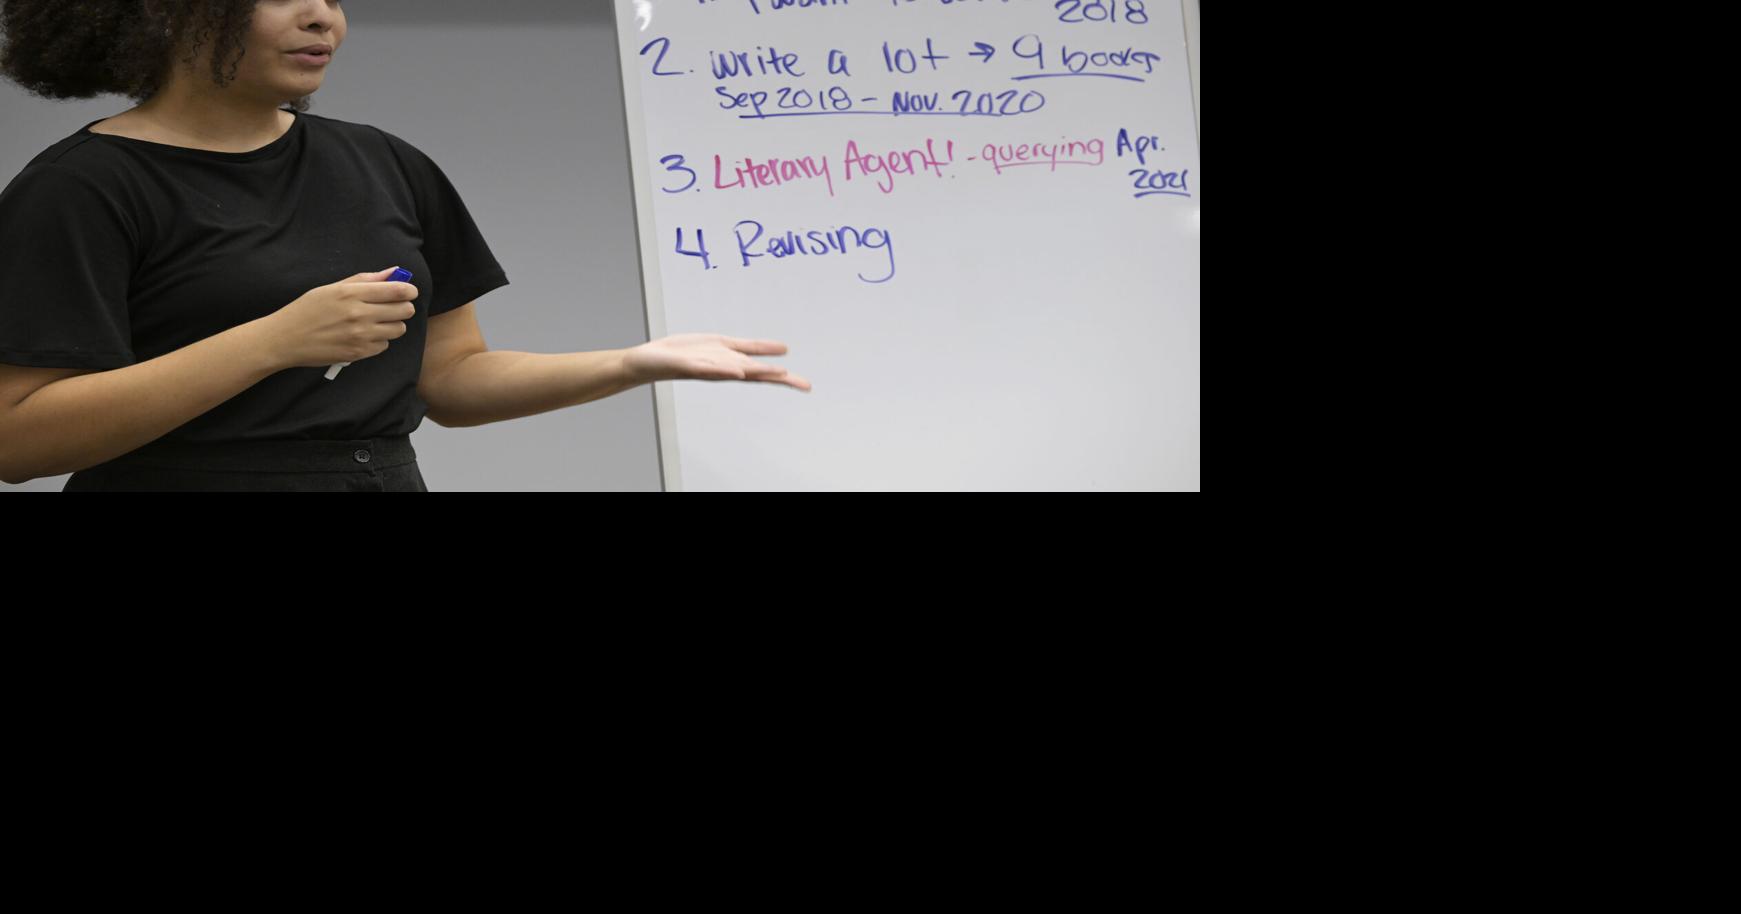 2018
2. write a lot → 9 books
Sep 2018 - Nov. 2020
3. Literary Agent! - querying Apr.
2021
4. Revising